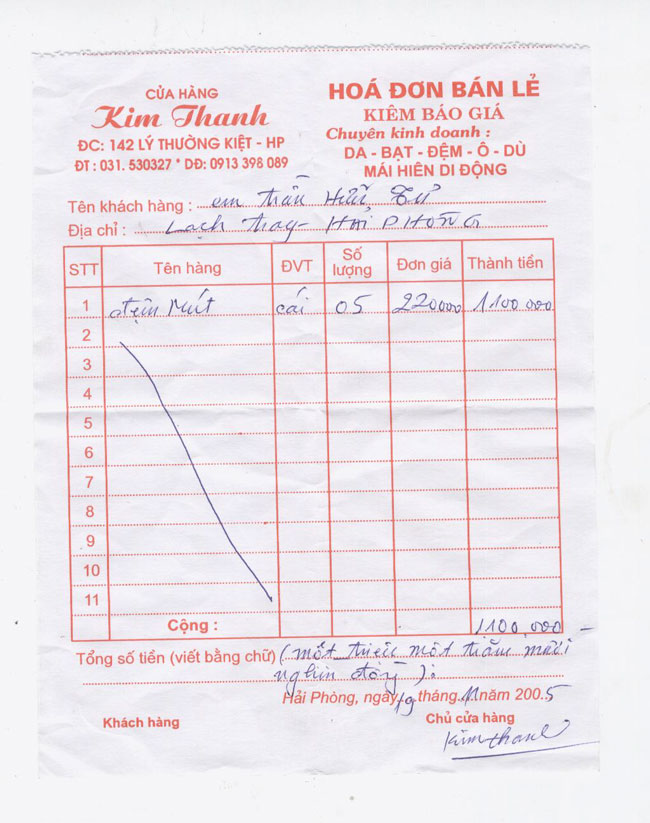 CỬA HÀNG
Kim Thanh
ĐC: 142 LÝ THƯỜNG KIỆT - HP
ĐT : 031. 530327 * DĐ: 0913 398 089
HOÁ ĐƠN BÁN LẺ
KIÊM BÁO GIÁ
Chuyên kinh doanh :
DA - BẠT - ĐỆM - Ô - DÙ
MÁI HIÊN DI ĐỘNG
Tên khách hàng : em trần Hữu Tư
Địa chỉ : Lạch tray - HẢI PHÒNG
STT Tên hàng ĐVT Số lượng Đơn giá Thành tiền
1 đệm mút cái 05 220000 1100 000
2
3
4
5
6
7
8
9
10
11
Cộng : 1100,000 -
Tổng số tiền (viết bằng chữ) ( một triệu một trăm
nghìn đồng ).
Hải Phòng, ngày 19 tháng 11 năm 2005
Khách hàng Chủ cửa hàng
Kim thanh